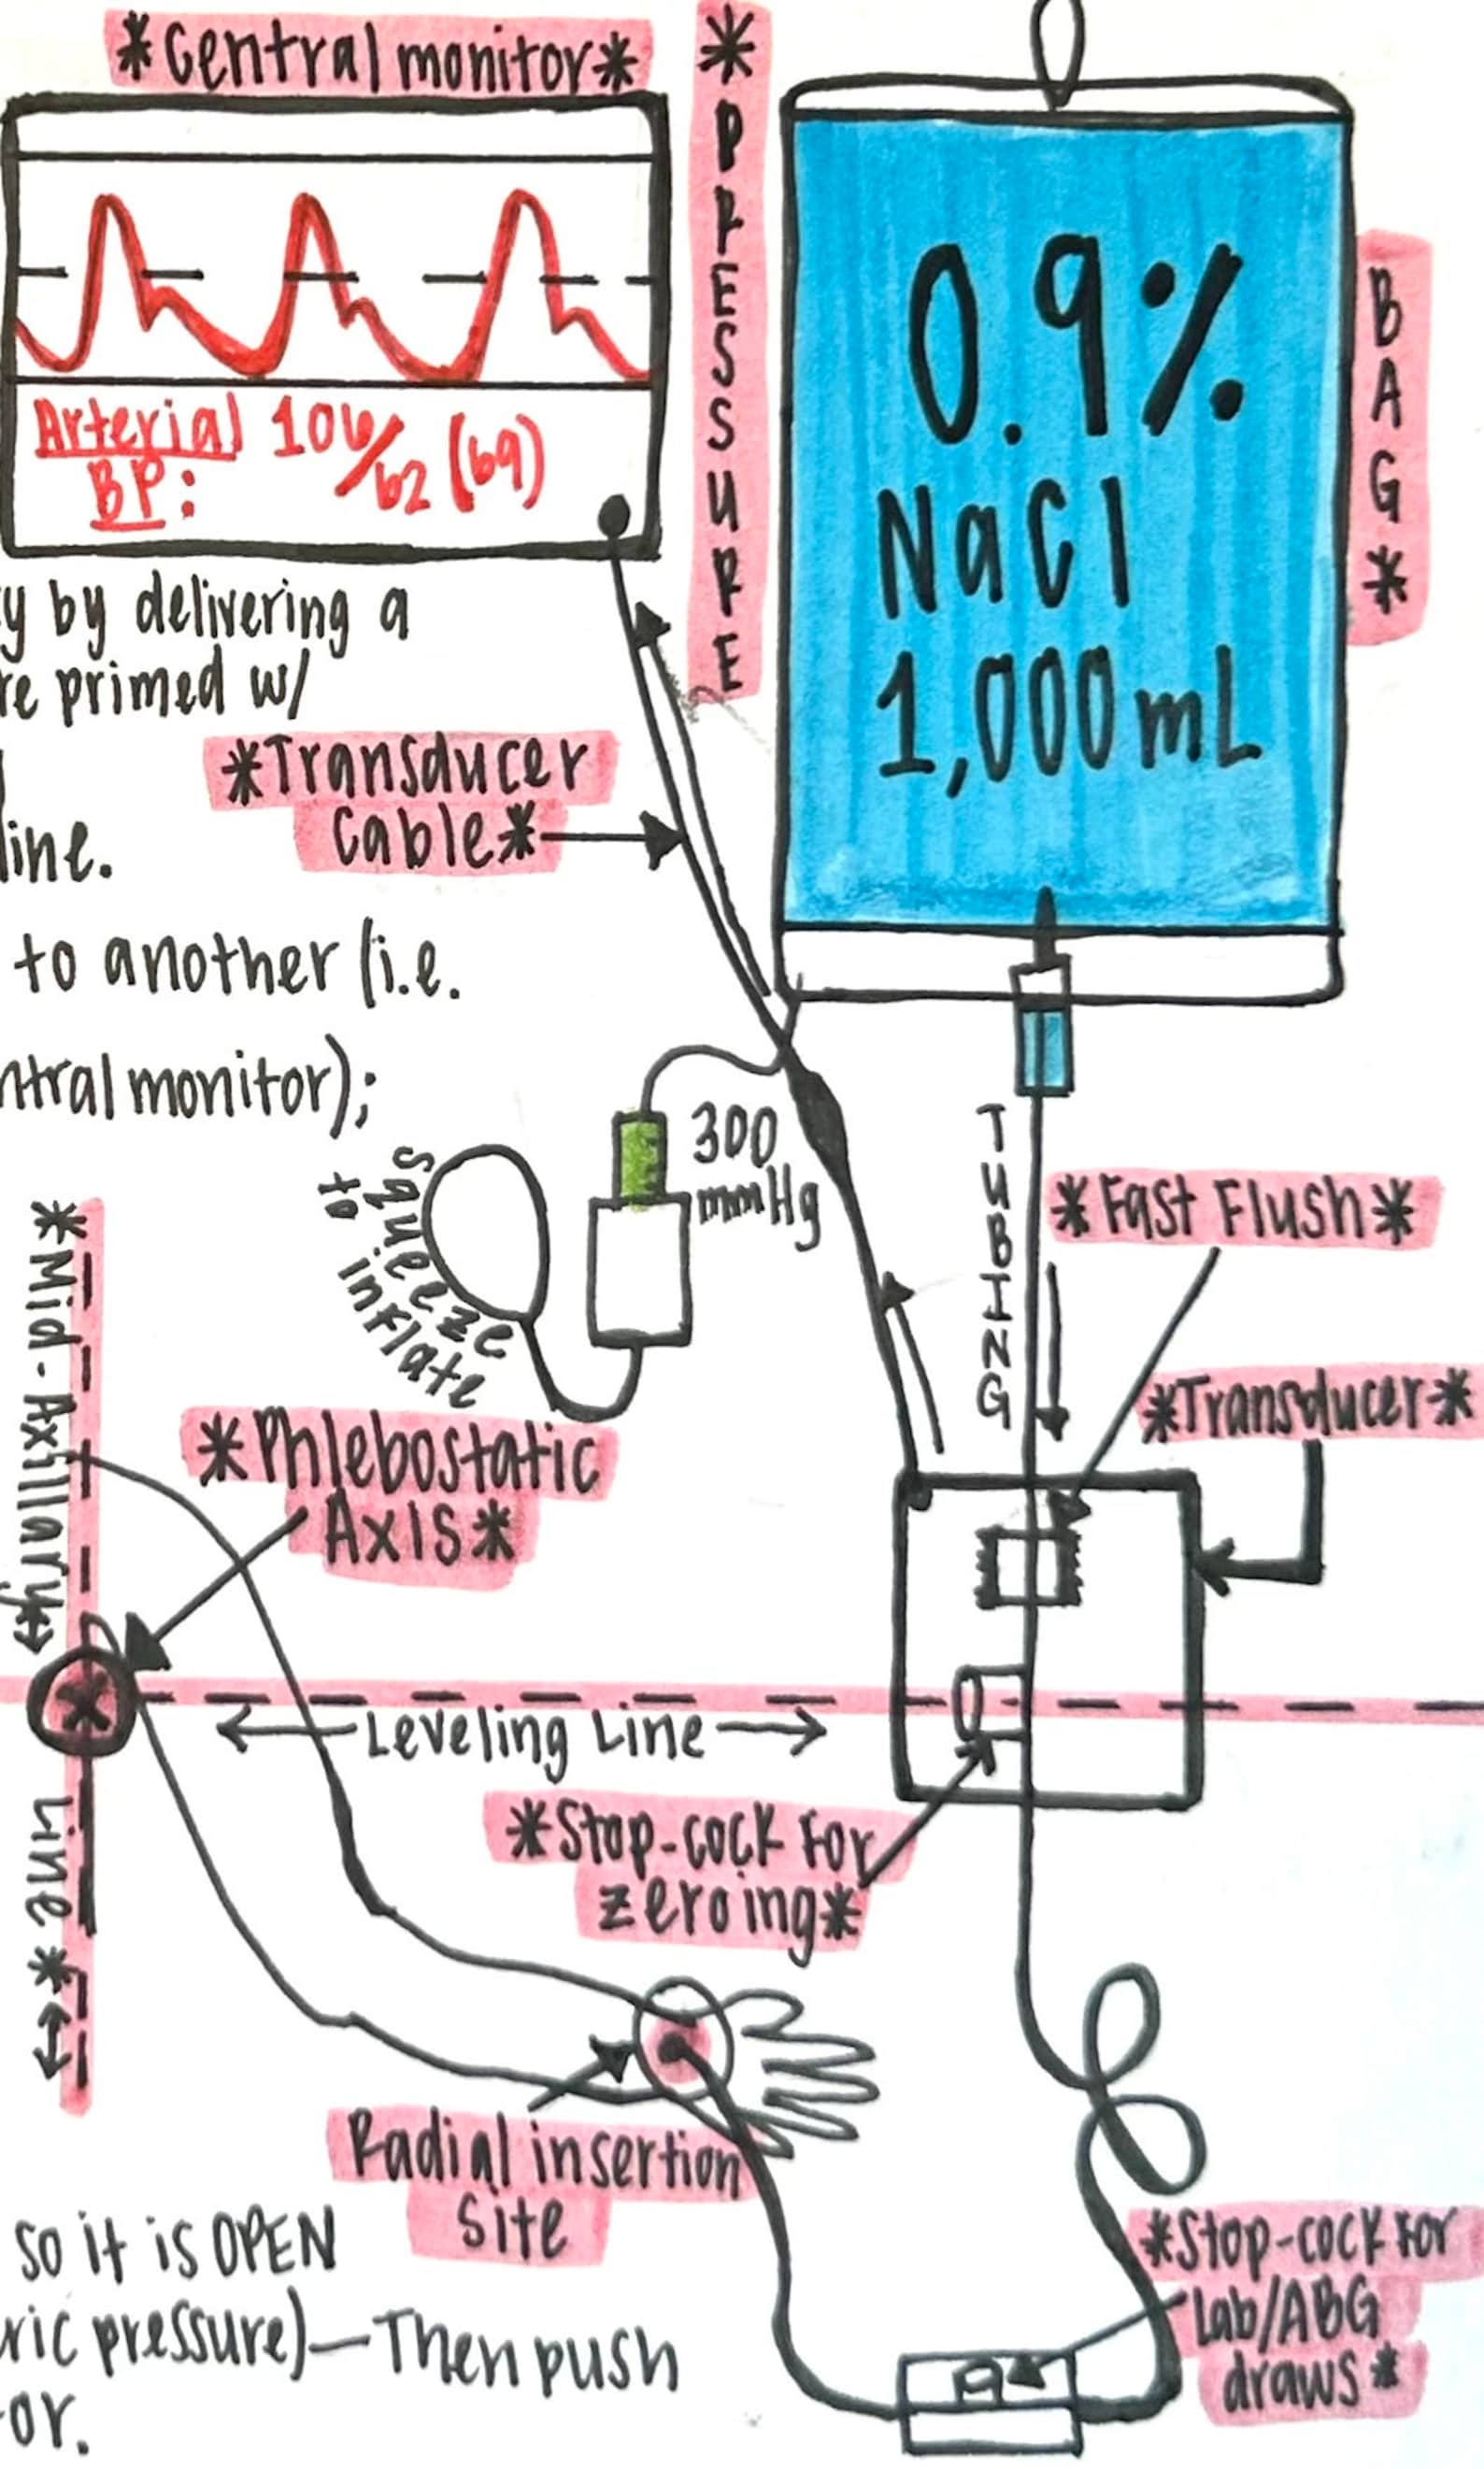 *Central monitor*
*PRESSURE
BAG*
0.9%
NaCl
1,000 mL
Arterial 106/62 (69)
BP:
y by delivering a
re primed w/
*Transducer
cable*
line.
to another (i.e.
ntral monitor);
300
mmHg
squeeze
to inflate
TUBING
*Fast Flush*
*Transducer*
*Mid-Axillary
Line*
*Phlebostatic
Axis*
Leveling Line
*Stop-cock For
zeroing*
Radial insertion
site
so it is OPEN
ric pressure)—Then push
or.
*Stop-cock For
Lab/ABG
draws*